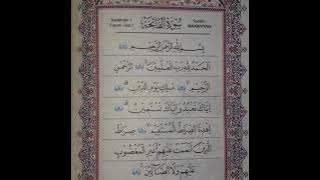 سُورَةُ الْفَاتِحَةِ
بِسْمِ اللَّهِ الرَّحْمَٰنِ الرَّحِيمِ
الْحَمْدُ لِلَّهِ رَبِّ الْعَالَمِينَ الرَّحْمَٰنِ
الرَّحِيمِ مَالِكِ يَوْمِ الدِّينِ
إِيَّاكَ نَعْبُدُ وَإِيَّاكَ نَسْتَعِينُ
اهْدِنَا الصِّرَاطَ الْمُسْتَقِيمَ صِرَاطَ
الَّذِينَ أَنْعَمْتَ عَلَيْهِمْ غَيْرِ الْمَغْضُوبِ
عَلَيْهِمْ وَلَا الضَّالِّينَ